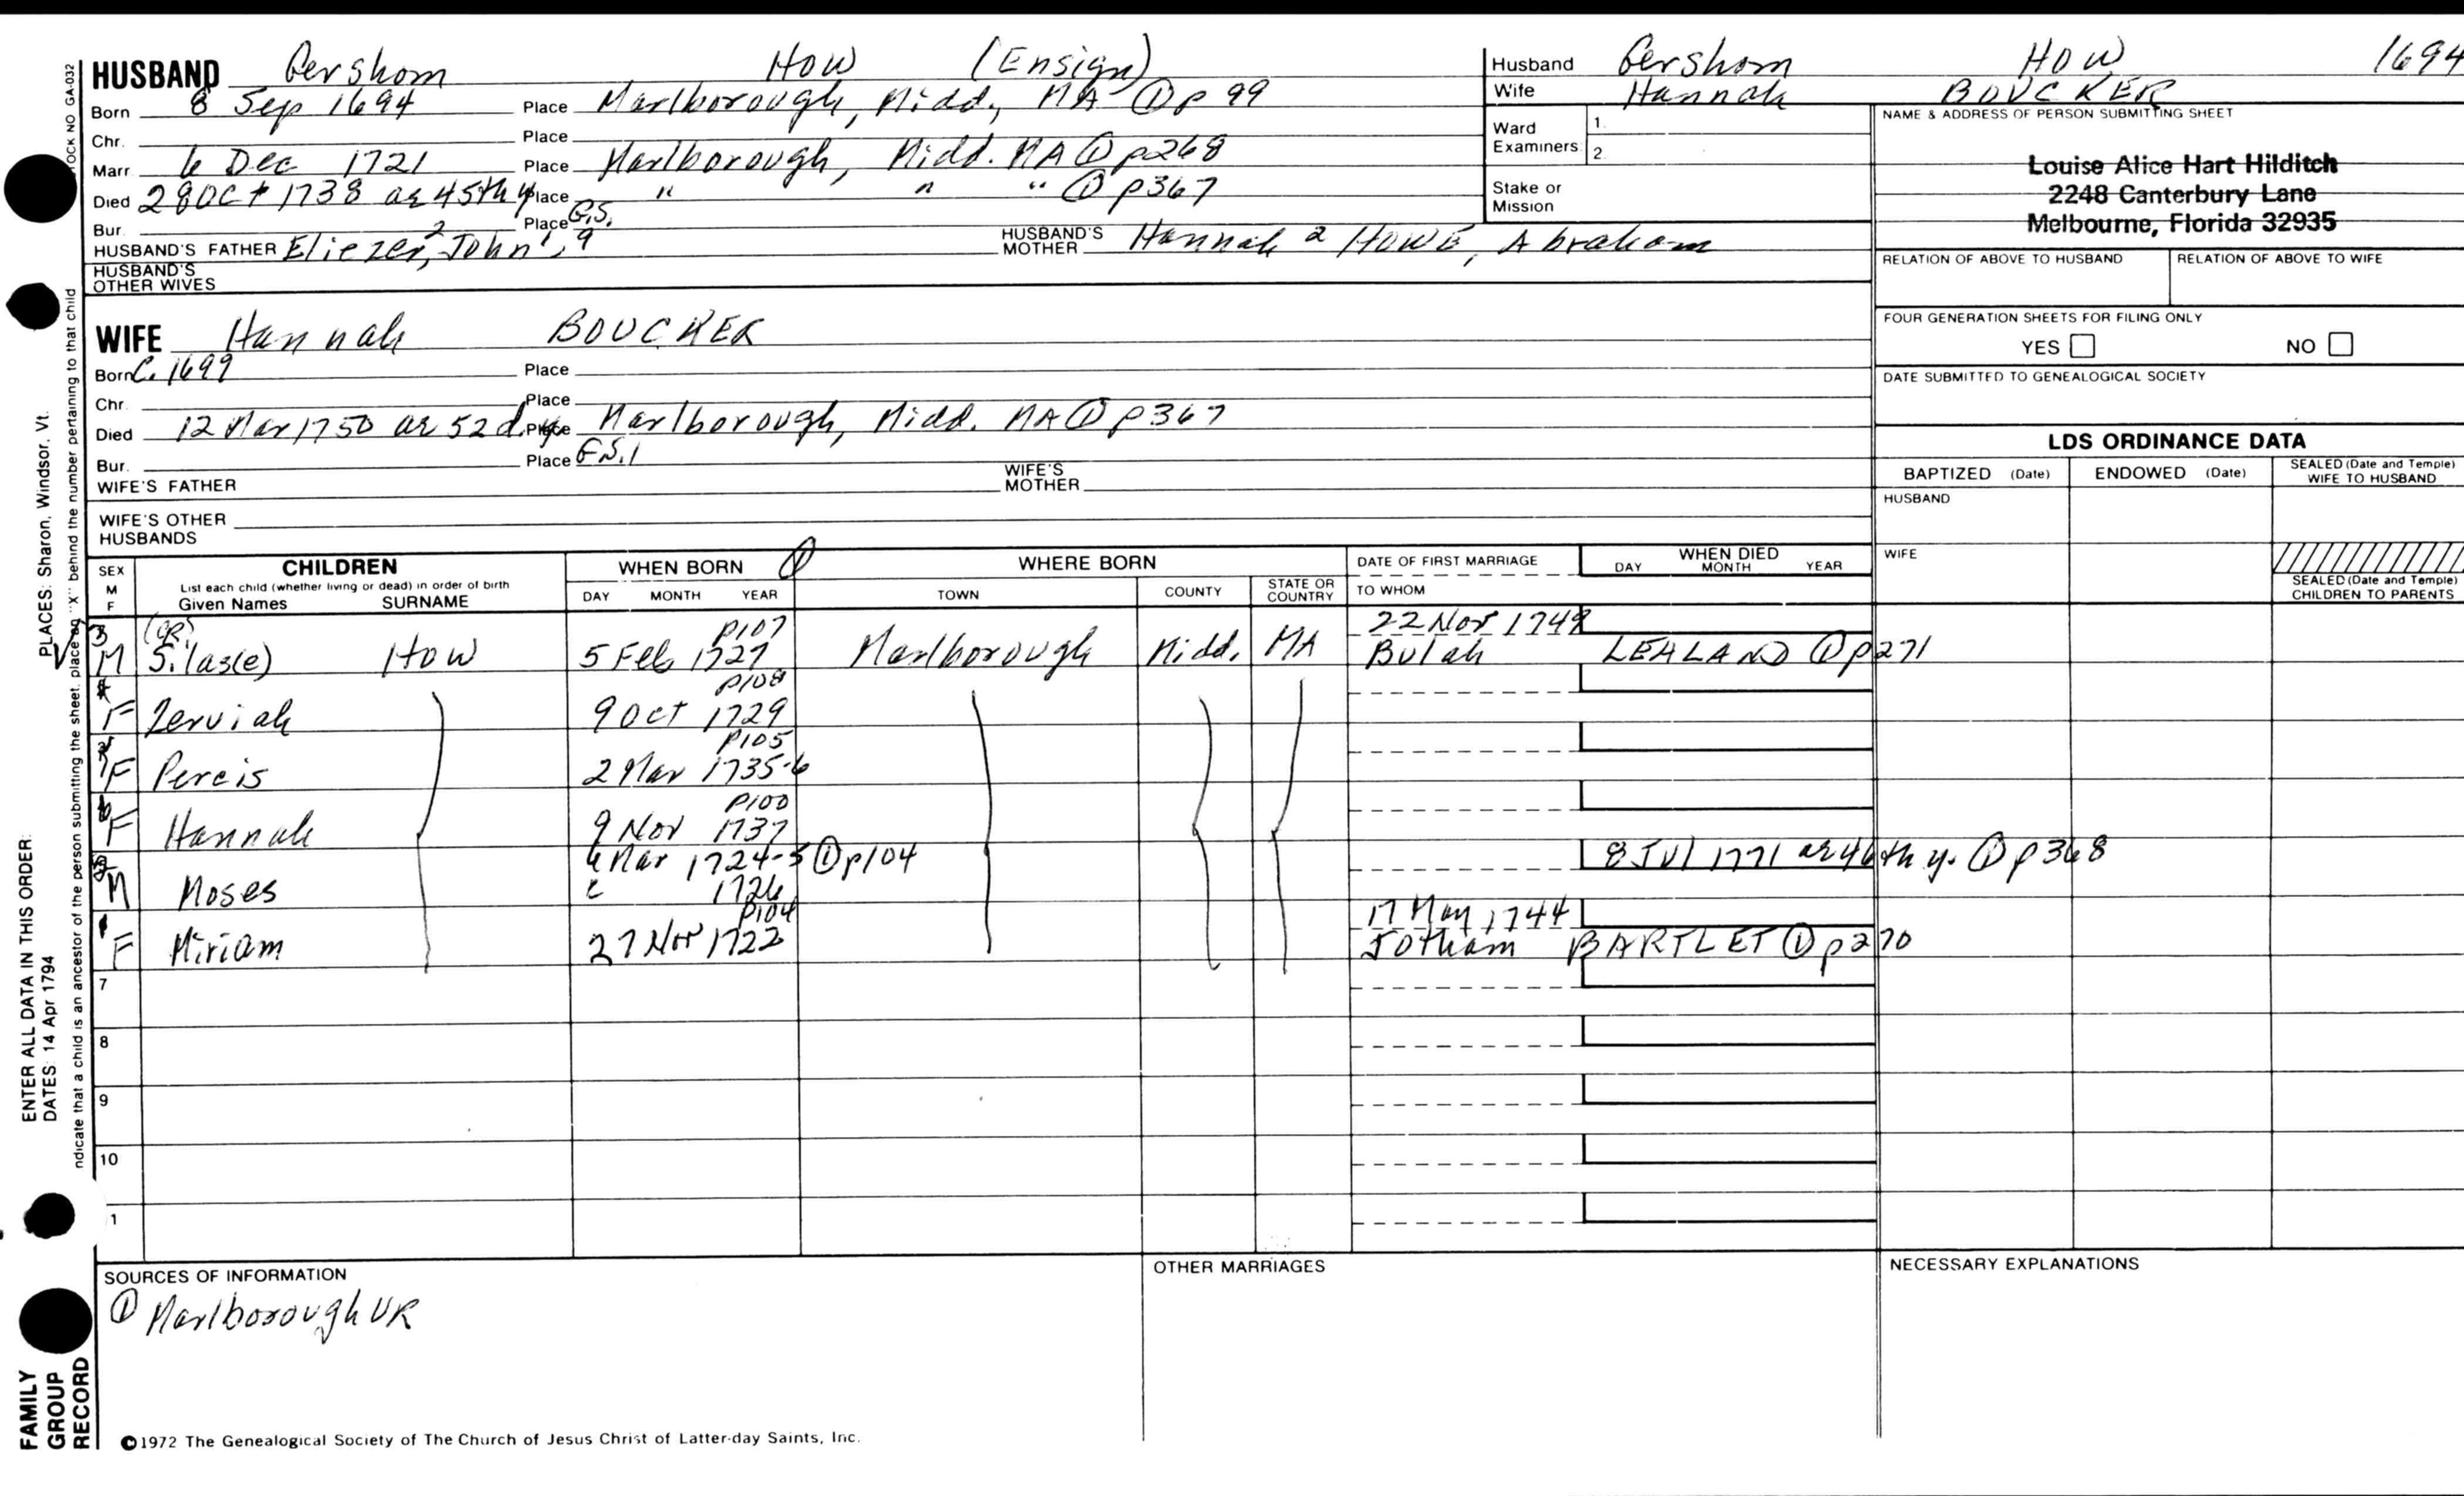 HUSBAND Gershom HOW (Ensign)
Born 8 Sep 1694 Place Marlborough, Midd., MA ① p 99
Chr. Place
Marr. 6 Dec 1721 Place Marlborough, Midd. MA ① p268
Died 28 Oct 1738 ae 45th y Place " " " ① p367
Bur. Place G.S.
HUSBAND'S FATHER Eliezer,² John¹, 9 HUSBAND'S MOTHER Hannah 2 HOWE, Abraham
HUSBAND'S OTHER WIVES
WIFE Hannah BOUCKER
Born C. 1699 Place
Chr. Place
Died 12 Mar 1750 ae 52d. y. Place Marlborough, Midd. MA ① p367
Bur. Place G.S.1
WIFE'S FATHER WIFE'S MOTHER
WIFE'S OTHER HUSBANDS
Husband Gershom HOW 1694
Wife Hannah BOUCKER
Ward Examiners 1. 2.
Stake or Mission
NAME & ADDRESS OF PERSON SUBMITTING SHEET
Louise Alice Hart Hilditch
2248 Canterbury Lane
Melbourne, Florida 32935
RELATION OF ABOVE TO HUSBAND RELATION OF ABOVE TO WIFE
FOUR GENERATION SHEETS FOR FILING ONLY
YES NO
DATE SUBMITTED TO GENEALOGICAL SOCIETY
LDS ORDINANCE DATA
BAPTIZED (Date) ENDOWED (Date) SEALED (Date and Temple) WIFE TO HUSBAND
HUSBAND
WIFE
SEALED (Date and Temple) CHILDREN TO PARENTS
SEX M F CHILDREN WHEN BORN ① WHERE BORN DATE OF FIRST MARRIAGE WHEN DIED
List each child (whether living or dead) in order of birth
Given Names SURNAME DAY MONTH YEAR TOWN COUNTY STATE OR COUNTRY TO WHOM DAY MONTH YEAR
3 (CR) P107 22 Nov 1749
M Silas(e) How 5 Feb 1727 Marlborough Midd. MA Bulah LEALAND ① p271
4 P108
F Zerviah 9 Oct 1729
P105
F Percis 2 Mar 1735-6
6 P100
F Hannah 9 Nov 1737
4 Mar 1724-5 ① p104 8 Jul 1771 ae 46th y. ① p 368
M Moses c 1726
1 P104 17 May 1744
F Miriam 27 Nov 1722 Jotham BARTLET ① p270
7
8
9
10
1
SOURCES OF INFORMATION OTHER MARRIAGES NECESSARY EXPLANATIONS
① Marlborough VR
©1972 The Genealogical Society of The Church of Jesus Christ of Latter-day Saints, Inc.
FAMILY GROUP RECORD
ENTER ALL DATA IN THIS ORDER:
DATES: 14 Apr 1794
PLACES: Sharon, Windsor, Vt.
ndicate that a child is an ancestor of the person submitting the sheet, place an "X" behind the number pertaining to that child
OCK NO GA-032